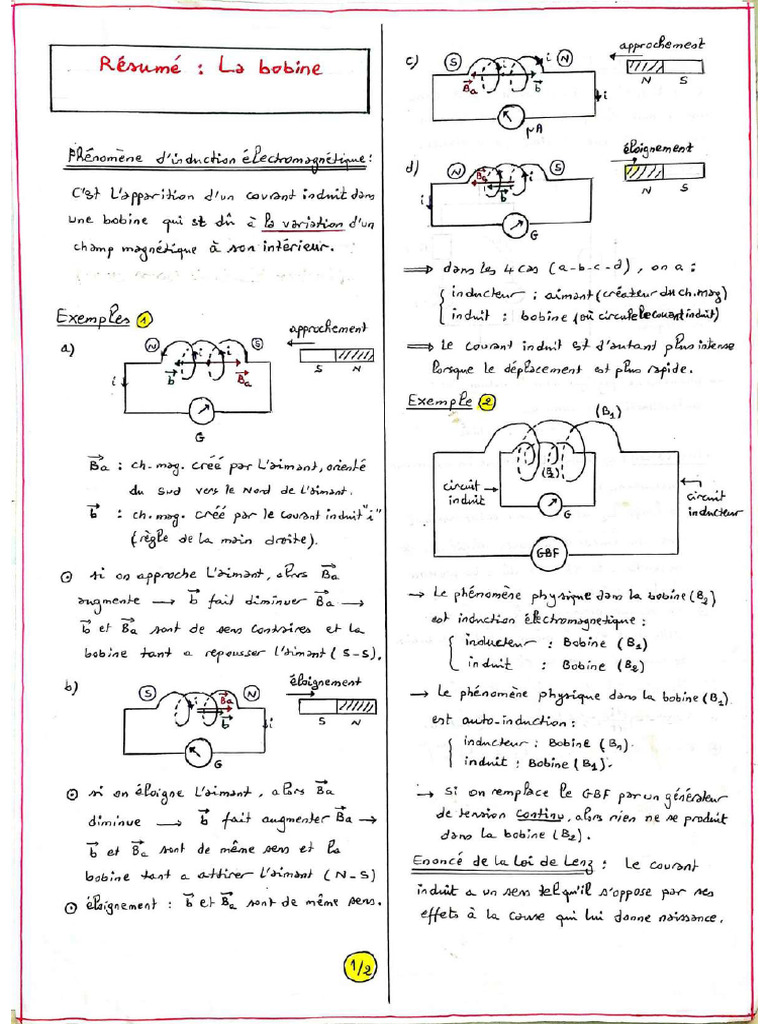 Résumé : La bobine
Phénomène d'induction électromagnétique :
C'est l'apparition d'un courant induit dans
une bobine qui st dû à la variation d'un
champ magnétique à son intérieur.
Exemples 1
a)
N
S
approchement
i
i
i
b
Ba
S
N
G
Ba : ch. mag. créé par l'aimant, orienté
du sud vers le Nord de l'aimant.
b : ch. mag. créé par le courant induit "i"
(règle de la main droite).
si on approche l'aimant, alors Ba
augmente → b fait diminuer Ba →
b et Ba sont de sens contraires et la
bobine tant a repousser l'aimant (S-S).
b)
S
N
éloignement
Ba
i
b
i
S
N
G
si on éloigne l'aimant, alors Ba
diminue → b fait augmenter Ba →
b et Ba sont de même sens et la
bobine tant a attirer l'aimant (N-S)
éloignement : b et Ba sont de même sens.
1/2
c)
S
i
N
approchement
Ba
b
i
N
S
µA
d)
N
S
éloignement
Ba
i
i
N
S
G
⇒ dans les 4 cas (a-b-c-d), on a :
inducteur : aimant (créateur du ch. mag)
induit : bobine (où circule le courant induit)
⇒ Le courant induit est d'autant plus intense
lorsque le déplacement est plus rapide.
Exemple 2
(B1)
(B2)
circuit
induit
G
circuit
inducteur
GBF
→ Le phénomène physique dans la bobine (B2)
est induction électromagnetique :
inducteur : Bobine (B1)
induit : Bobine (B2)
→ Le phénomène physique dans la bobine (B1)
est auto-induction :
inducteur : Bobine (B1).
induit : Bobine (B1).
→ si on remplace le GBF par un générateur
de tension continu, alors rien ne se produit
dans la bobine (B2).
Enoncé de la Loi de Lenz : Le courant
induit a un sens tel qu'il s'oppose par ses
effets à la cause qui lui donne naissance.